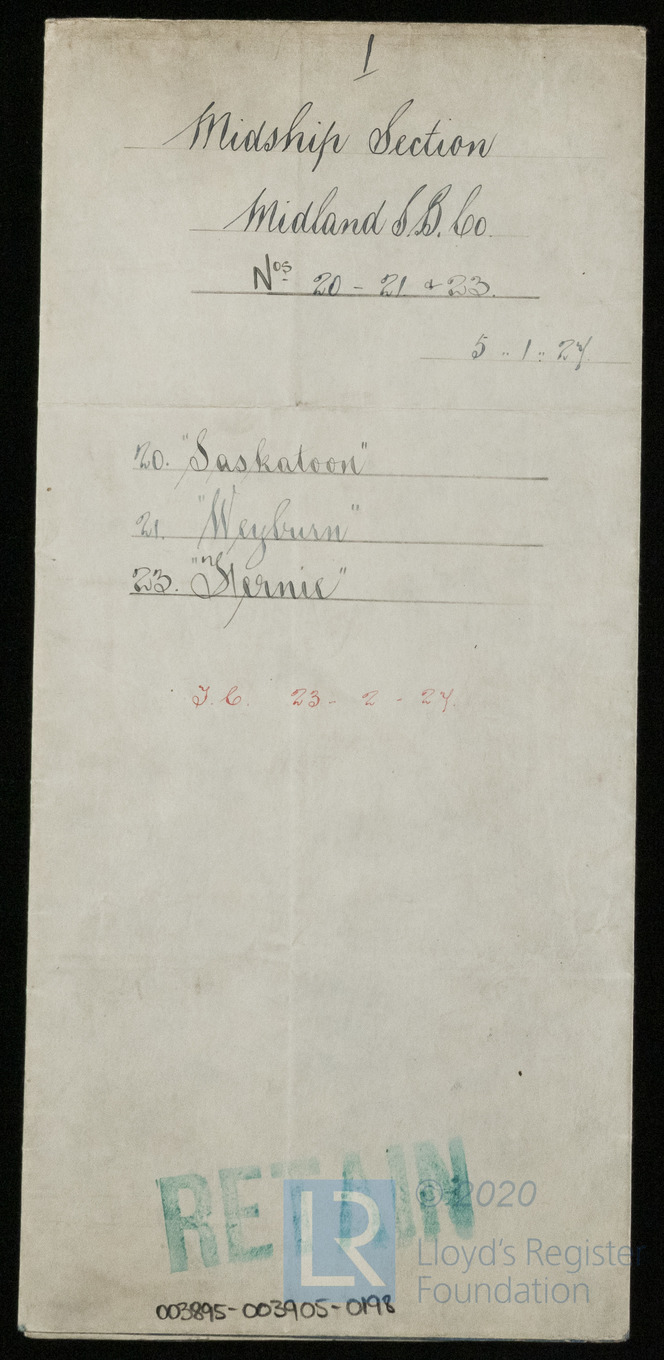 1
Midship Section
Midland S.B. Co.
Nos 20 - 21 & 23.
5 .. 1 .. 27
20. "Saskatoon"
21. "Weyburn"
23. "Fernie"
J.C. 23 - 2 - 27.
RETAIN
© 2020
LR
Lloyd's Register
Foundation
003895-003905-0198